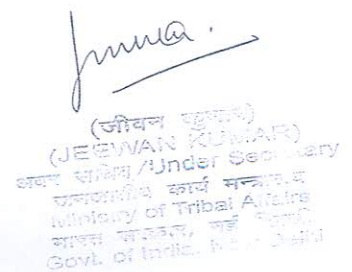 (जीवन कुमार)
(JEEWAN KUMAR)
अवर सचिव/Under Secretary
जनजातीय कार्य मन्त्रालय
Ministry of Tribal Affairs
भारत सरकार, नई दिल्ली
Govt. of India, New Delhi